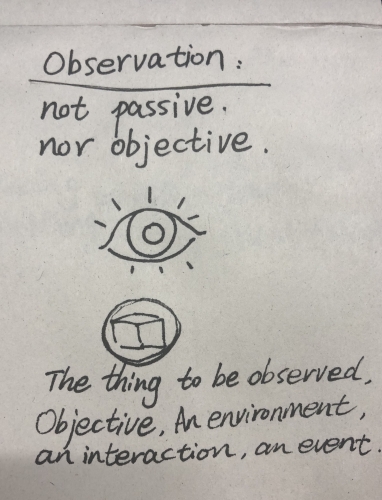 Observation :
not passive.
nor objective.
The thing to be observed,
Objective, An environment,
an interaction, an event.